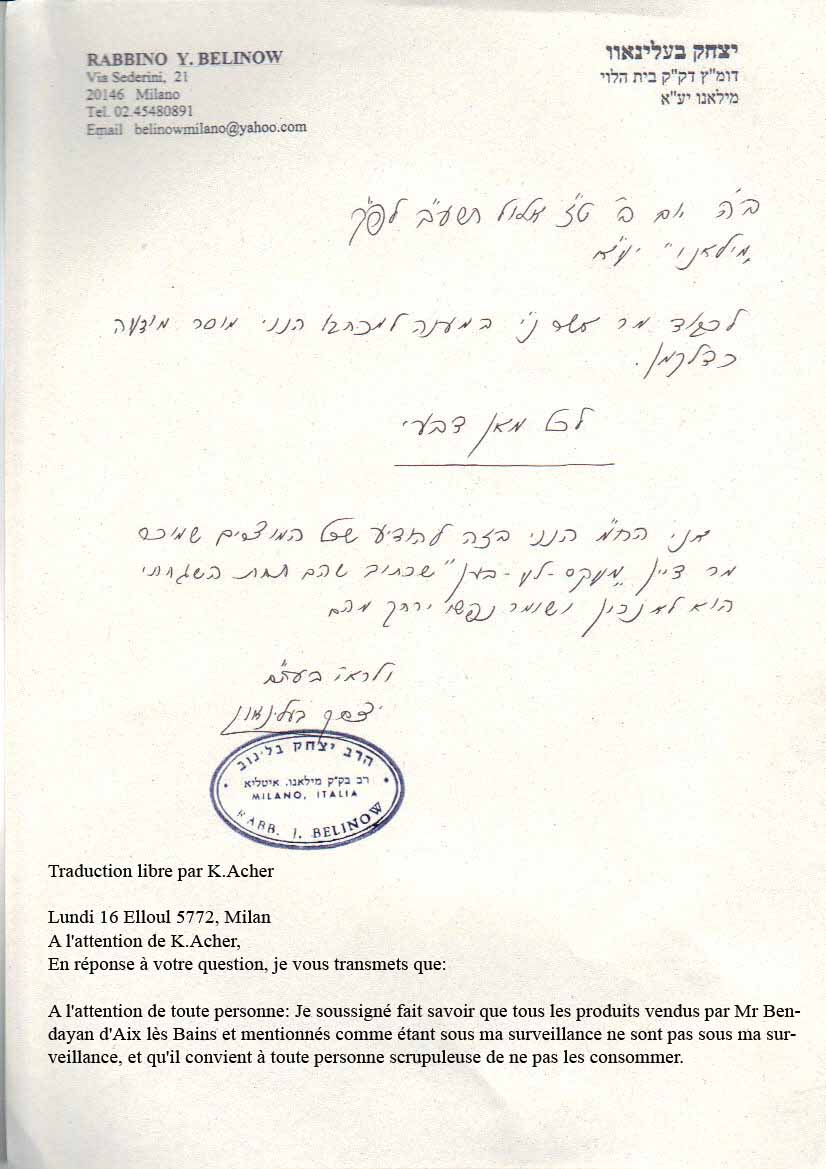 RABBINO Y. BELINOW
Via Sederini, 21
20146 Milano
Tel. 02.45480891
Email belinowmilano@yahoo.com
יצחק בעלינאוו
דומ"ץ דק"ק בית הלוי
מילאנו יע"א
ב"ה יום ב' ט"ז אלול תשע"ב לפ"ק
מילאנו יע"א
לכבוד מר אשר נ"י במענה למכתבו הנני מוסר מודעה
כדלקמן.
לכל מאן דבעי
אני הח"מ הנני בזה להודיע שכל המוצרים שמוכר
מר דיין מעקס-לע-בען" שכתוב שהם תחת השגחתי
הוא לא נכון ושומר נפשו ירחק מהם
ולראי' בעה"ח
יצחק בעלינאוו
הרב יצחק בלינוב
רב בק"ק מילאנו, איטליא
MILANO, ITALIA
RABB. I. BELINOW
Traduction libre par K.Acher
Lundi 16 Elloul 5772, Milan
A l'attention de K.Acher,
En réponse à votre question, je vous transmets que:
A l'attention de toute personne: Je soussigné fait savoir que tous les produits vendus par Mr Ben-
dayan d'Aix lès Bains et mentionnés comme étant sous ma surveillance ne sont pas sous ma sur-
veillance, et qu'il convient à toute personne scrupuleuse de ne pas les consommer.